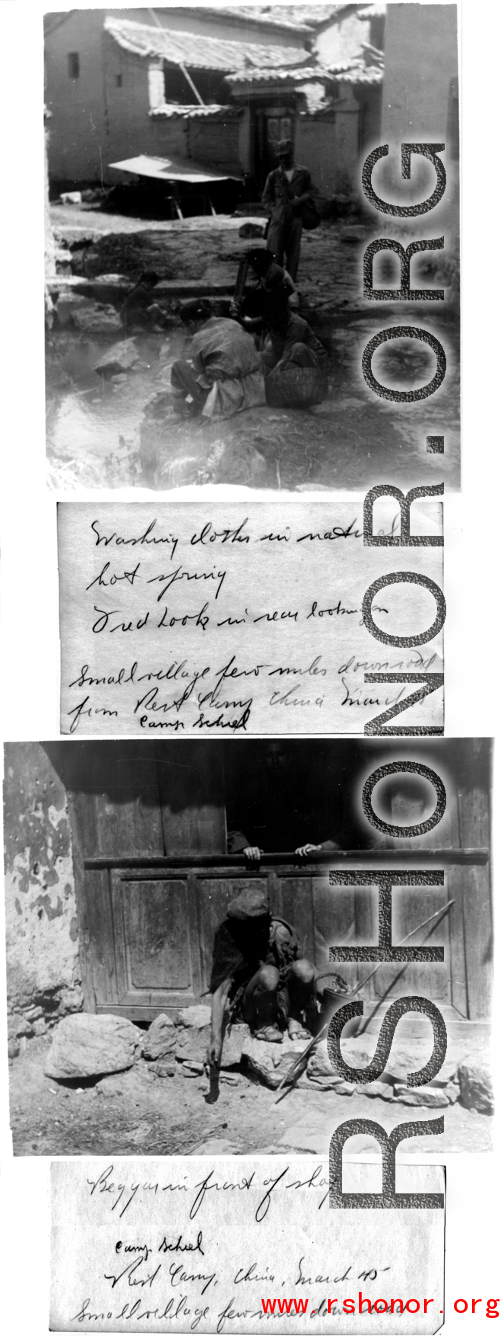 Washing clothes in natural
hot spring
Fred Look in rear looking on
Small village few miles down road
from Rest Camp China March
Camp Schiel
Beggar in front of shop
Camp Schiel
Rest Camp, China, March 45
Small village few miles down road
RSHONOR.ORG
www.rshonor.org